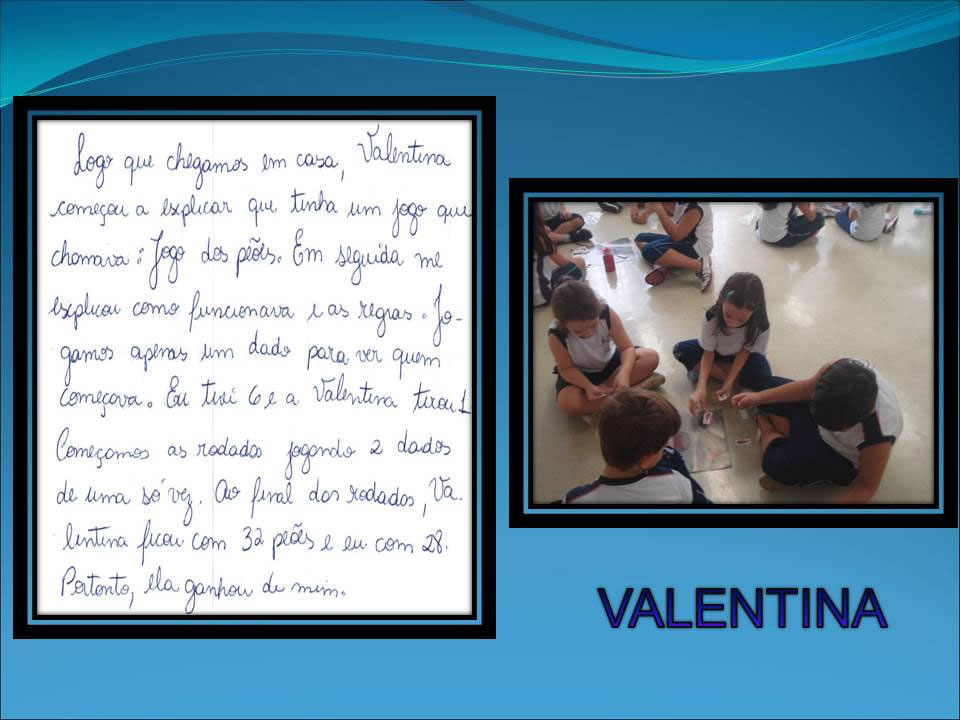 Logo que chegamos em casa, Valentina
começou a explicar que tinha um jogo que
chamava: Jogo dos peões. Em seguida me
explicou como funcionava e as regras. Jo-
gamos apenas um dado para ver quem
começava. Eu tirei 6 e a Valentina tirou 1
Começamos as rodadas jogando 2 dados
de uma só vez. Ao final das rodadas, Va-
lentina ficou com 32 peões e eu com 28.
Portanto, ela ganhou de mim.
VALENTINA